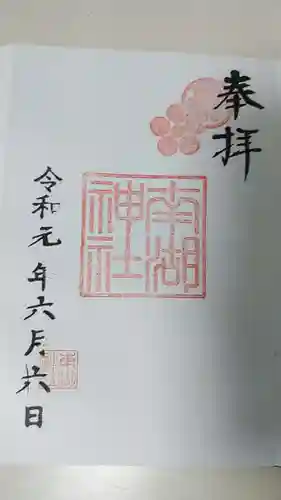 奉拝
南湖
神社
令和元年六月廿六日